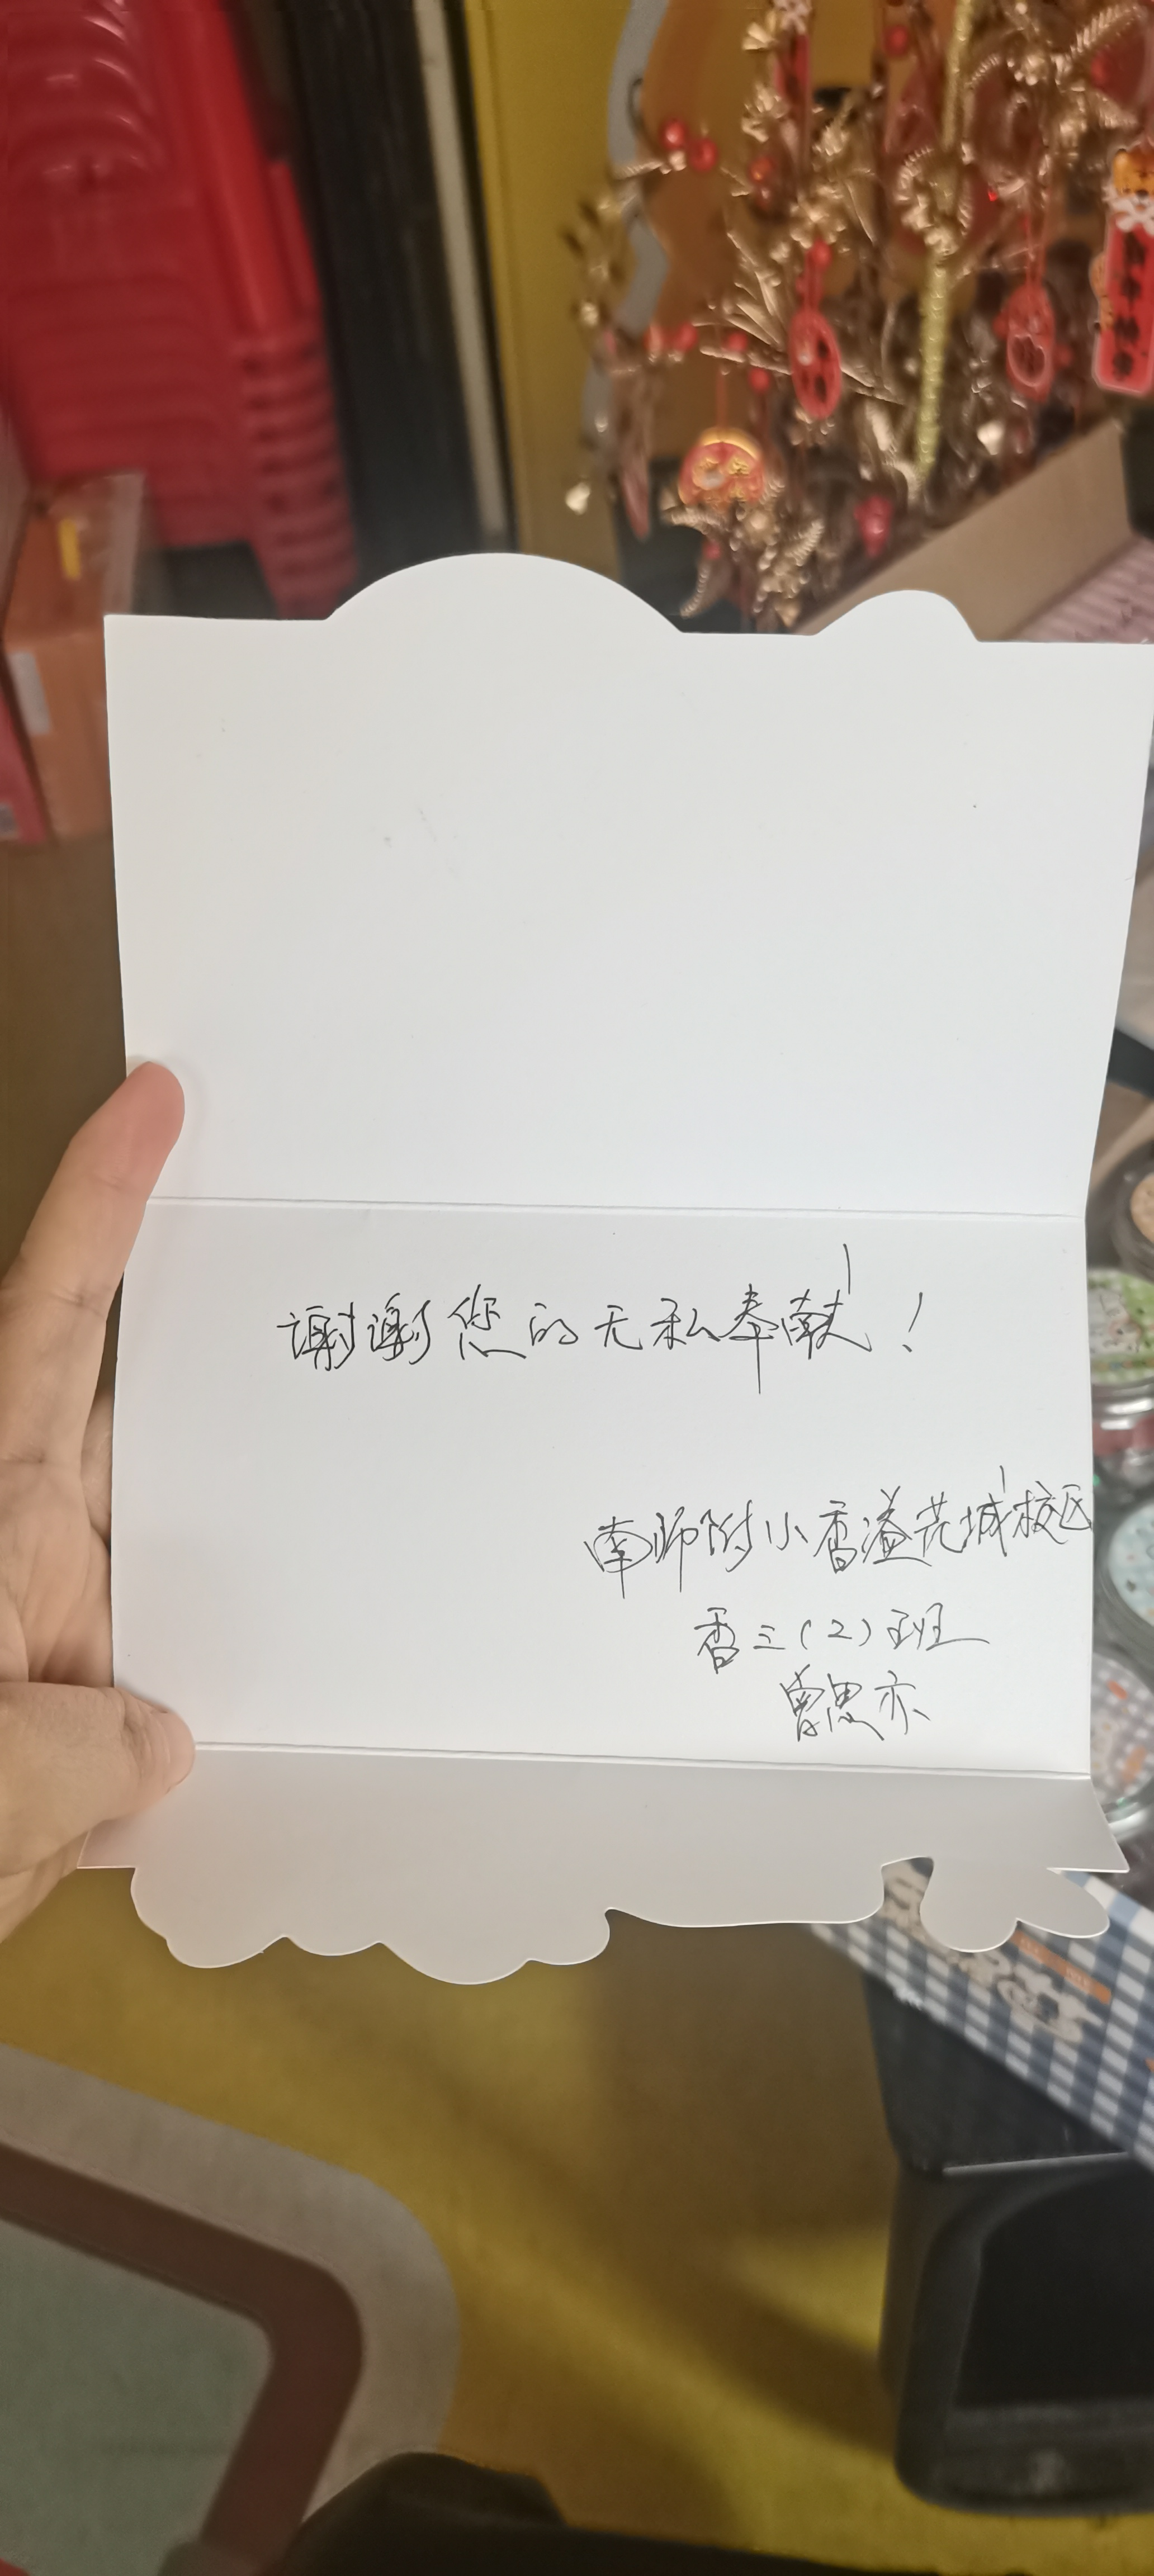 谢谢您的无私奉献！
南师附小香溢花城校区
香三（2）班
曾思亦